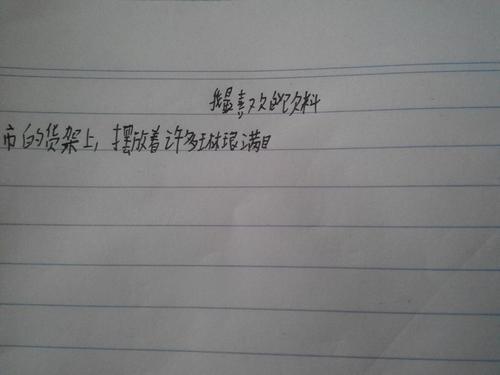 我最喜欢的饮料
市的货架上，摆放着许多琳琅满目